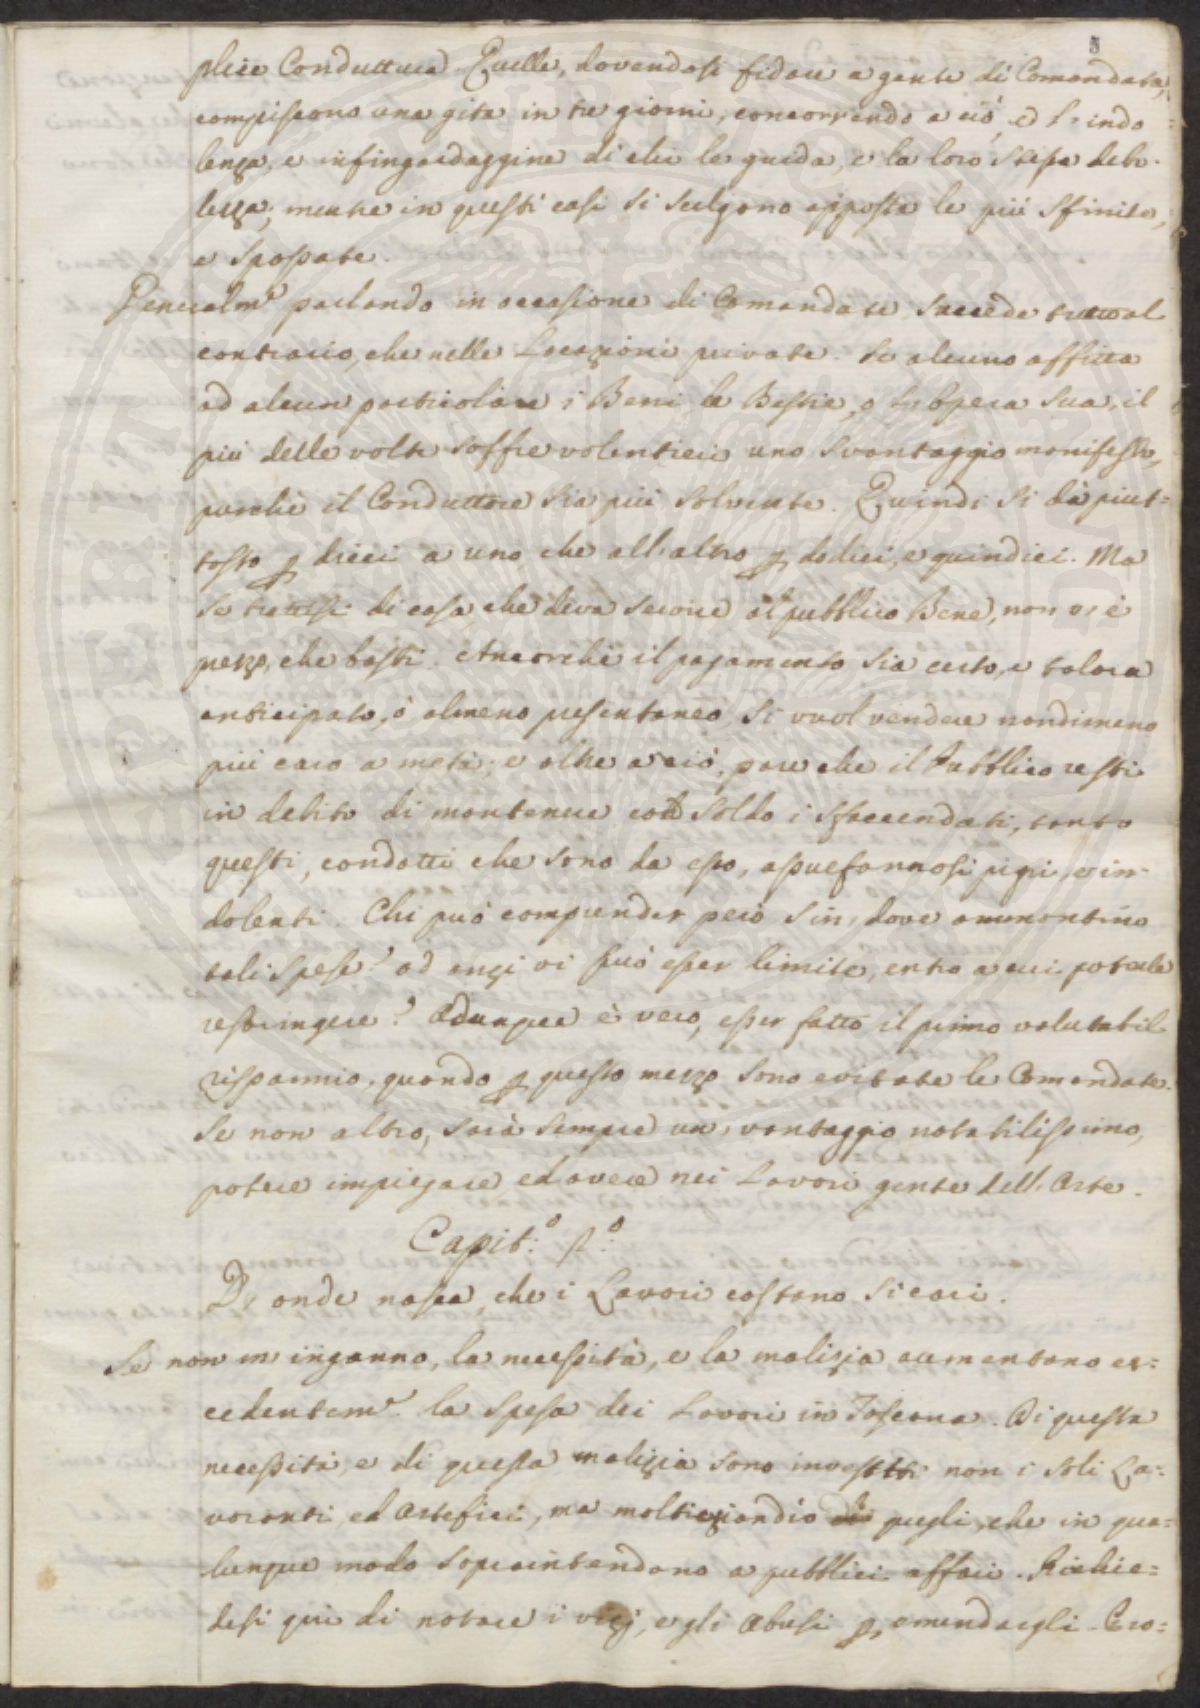 plice Conduttura. Quelle, dovendosi fidare a gente di Comandata,
compiscono una gita in tre giorni, concorrendo a ciò, e l'indo=
lenza, e infingardaggine di chi le guida, e la loro stessa debo=
lezza; mentre in questi casi si scelgono apposta le più sfinite,
e spossate.
Generalm.e parlando in occasione di Comandate succede tutto al
contrario, che nelle Locazioni private. Se alcuno affitta
ad alcun particolare i Beni, le Bestie, o l'Opera sua, il
più delle volte soffre volentieri uno svantaggio manifesto,
purchè il Conduttore sia più solvente. Quindi si dà piut=
tosto p dieci a uno, che all'altro p dodici, e quindici. Ma
se trattisi di cosa, che deva servire al pubblico Bene, non vi è
prezzo, che basti. Ancorchè il pagamento sia certo, e talora
anticipato, ò almeno presentaneo, si vuol vendere nondimeno
più caro a metà; e oltre a ciò, pare che il Pubblico resti
in debito di mantenere col soldo i sfaccendati, tanto
questi, condotti che sono da esso, assuefannosi pigri, e in=
dolenti. Chi può comprender però sin dove ammontino
tali spese? od anzi vi può esser limite, entro a cui poterle
restringere? Adunque è vero, esser fatto il primo valutabil
risparmio, quando p questo mezzo sono evitate le Comandate.
Se non altro, sarà sempre un vantaggio notabilissimo,
potere impiegare, ed avere nei Lavori gente dell'Arte.
Capit:o 1:o
D'onde nasca, che i Lavori costano sì cari.
Se non m'inganno, la necessità, e la malizia aumentano ec=
cedentem.e la spesa dei Lavori in Toscana. Di questa
necessità, e di questa malizia sono investiti non i soli La=
voranti, ed Artefici, ma molti eziandio di quegli, che in qua=
lunque modo sopraintendono a pubblici affari. Richie=
desi qui di notare i vizj, e gli Abusi p emendargli. Cro=